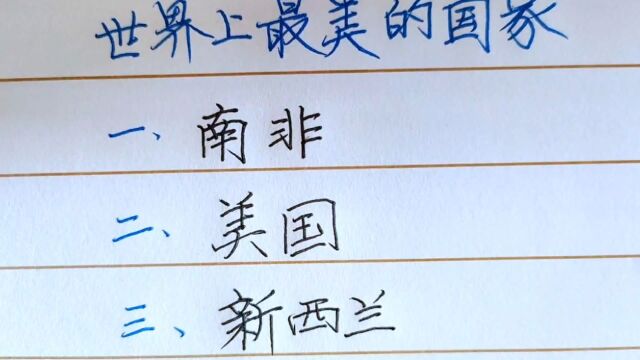 世界上最美的国家
一、南非
二、美国
三、新西兰